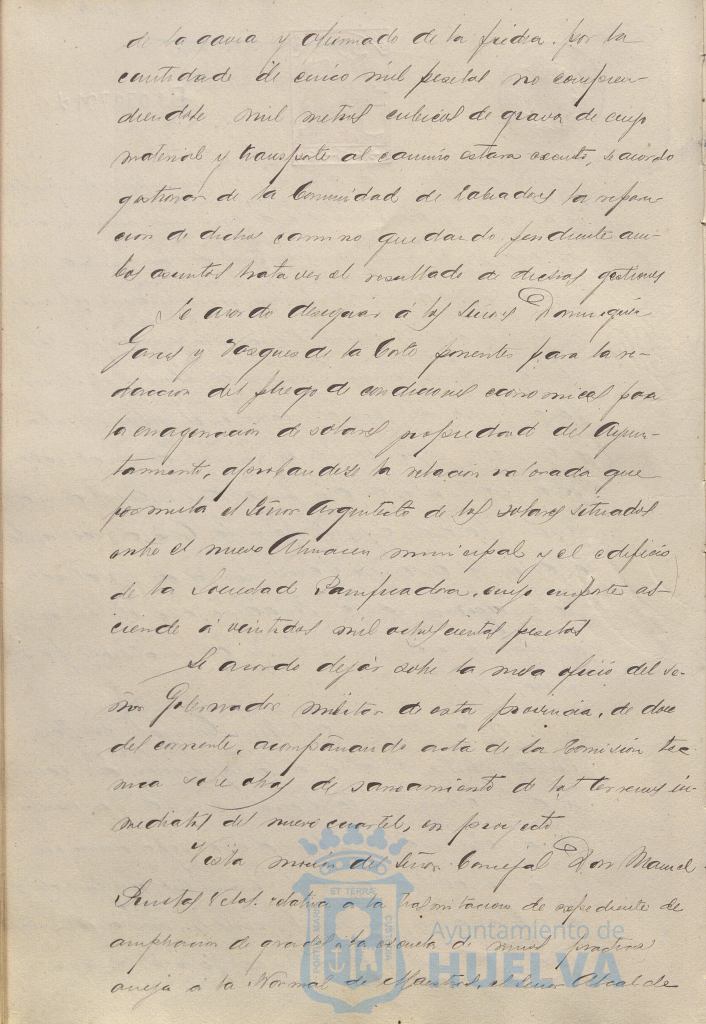 de la gavia y afirmado de la piedra. por la
cantidad de cinco mil pesetas no compren-
diendose mil metros cubicos de grava de cuyo
material y transporte al camino estara exento, se acordo
gestionar de la Comunidad de Labradores la repara-
cion de dicho camino quedando pendiente am-
bos asuntos hasta ver el resultado de dichas gestiones
Se acordo designar á los Señores Dominguez
Garcés y Vazquez de la Corte ponentes para la re-
daccion del pliego de condiciones economicas para
la enagenacion de solares propiedad del Ayun-
tamiento, aprobandose la relacion valorada que
formula el Señor Arquitecto de los solares situados
entre el nuevo Almacen municipal y el edificio
de la Sociedad Panificadora, cuyo importe as-
ciende á veintidos mil ochocientas pesetas
Se acordo dejar sobre la mesa oficio del Se-
ñor Gobernador militar de esta provincia, de doce
del corriente, acompañando acta de la Comisión tec-
nica sobre obras de saneamiento de los terrenos in-
mediatos del nuevo cuartel, en proyecto
Vista moción del Señor Concejal Don Manuel
relativa a la tramitacion de expediente de
ampliacion de grados á la escuela de niños practica
aneja á la Normal de Maestros, el Señor Alcalde
Ayuntamiento de
HUELVA